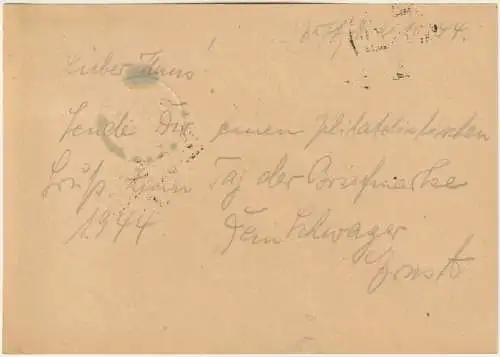 Lieber Hans!
Sende Dir einen philatelistischen
Gruß zum Tag der Briefmarke
1944 Dein Schwager
Ernst